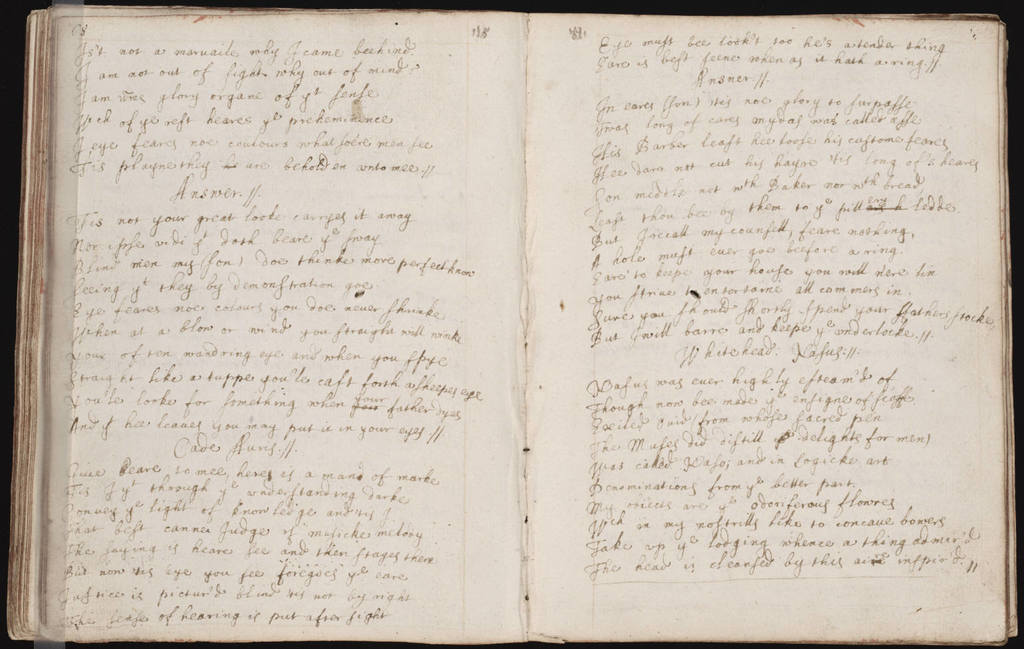 68
118
Is't not a marvaile why I came beehind
I am not out of sight why out of mind?
I am the glory organe of yt sense
Wch of ye rest beares ye preheminence
I eye feares noe coulours what soere men see
Tis playne they are beholden unto mee://
Answer.//.
Tis not your great looke carryes it away
Nor ipse vidi yt doth beare ye sway
Blind men my (son) doe thinke more perfect know
Seeing yt they by demonstration goe
Eye feares noe colours you doe never shrinke
When at a blow or wind you straight will winke
Your often wandring eye and when you spye
Straight like a tuppe you'le cast forth a sheepes eye
You'le looke for something when your father dyes
And if hee leaves you may put it in your eyes://
Cade Auris.//.
Give eare to mee, heres a man of marke
Tis I yt through ye understanding darke
Convey ye light of knowledge and tis I
That best canne Judge of musicke melody
The saying is heare see and then stages there
But now tis eye you see foregoes ye eare
Justice is pictur'd blind tis not by right
The sense of hearing is put after sight
Eye must bee look't too he's a tender thing
Eare is best seene when as it hath a ring.//
Answer.//.
In eares (son) tis noe glory to surpasse
Twas long of eares mydas was called asse
His Barber least hee loose his custome feares
Hee darr not cut his hayre tis long of's heares
Son middle not wth Baker nor wth bread
Least thou bee by them to ye pillory ledde.
But I recall my counsell, feare nothing,
A hole must ever goe beefore a ring.
Eare to keepe your house you will nere lin
You strive to entertaine all commers in.
Sure you should shortly spend your fathers stocke
But I will barre and keepe ye under locke.//.
Whitehead: Nasus://.
Nasus was ever highly esteam'd of
Though now bee made ye ensigne of scoffe
Exciled Ovid (from whose sacred pen
The Muses did distill delights for men)
Was called Naso; and in Logicke art
Denominations from ye better part.
My voices are ye odoriferous flowres
Wch in my nostrills like to concave bowers
Take up ye lodging whence a thing admir'd
The head is cleansed by this aire inspir'd.//